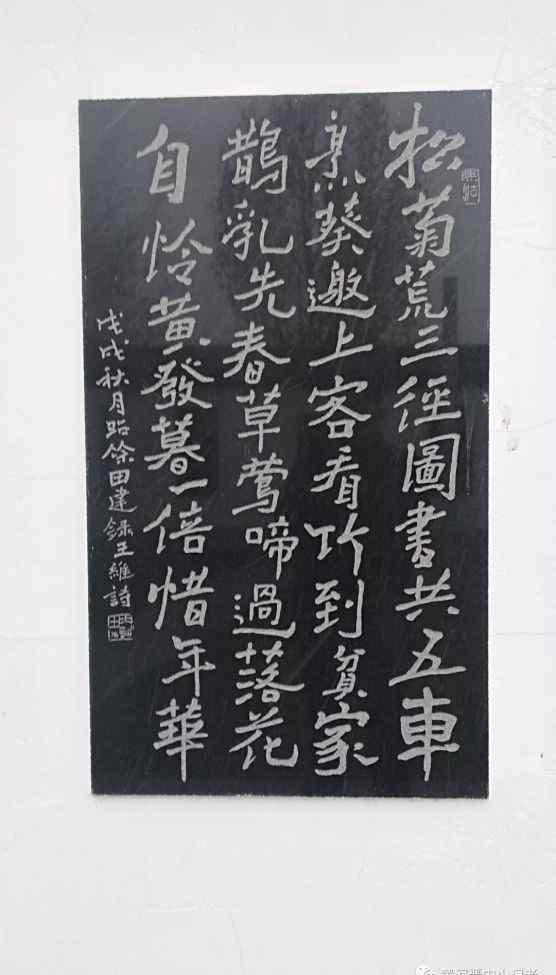 松菊荒三徑圖書共五車
烹葵邀上客看竹到貧家
鵲乳先春草鶯啼過落花
自怜黃髮暮一倍惜年華
戊戌秋月 田建錄王維詩